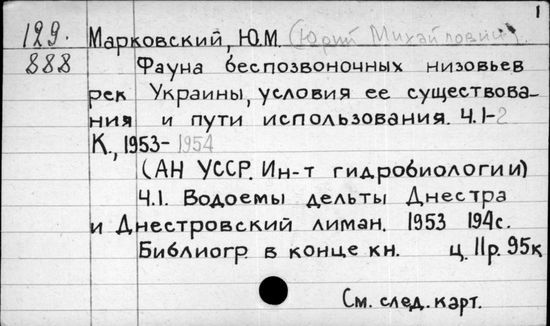 1
129. Марковский, Ю.М. (Юрий Михайлович).
888 Фауна беспозвоночных низовьев
рек Украины, условия ее существова-
ния и пути использования. Ч.1-2
К., 1953-1954
(АН УССР. Ин-т гидробиологии)
Ч.1. Водоемы дельты Днестра
и Днестровский лиман. 1953 194с.
Библиогр. в конце кн. ц. 11р. 95к
См. след. карт.